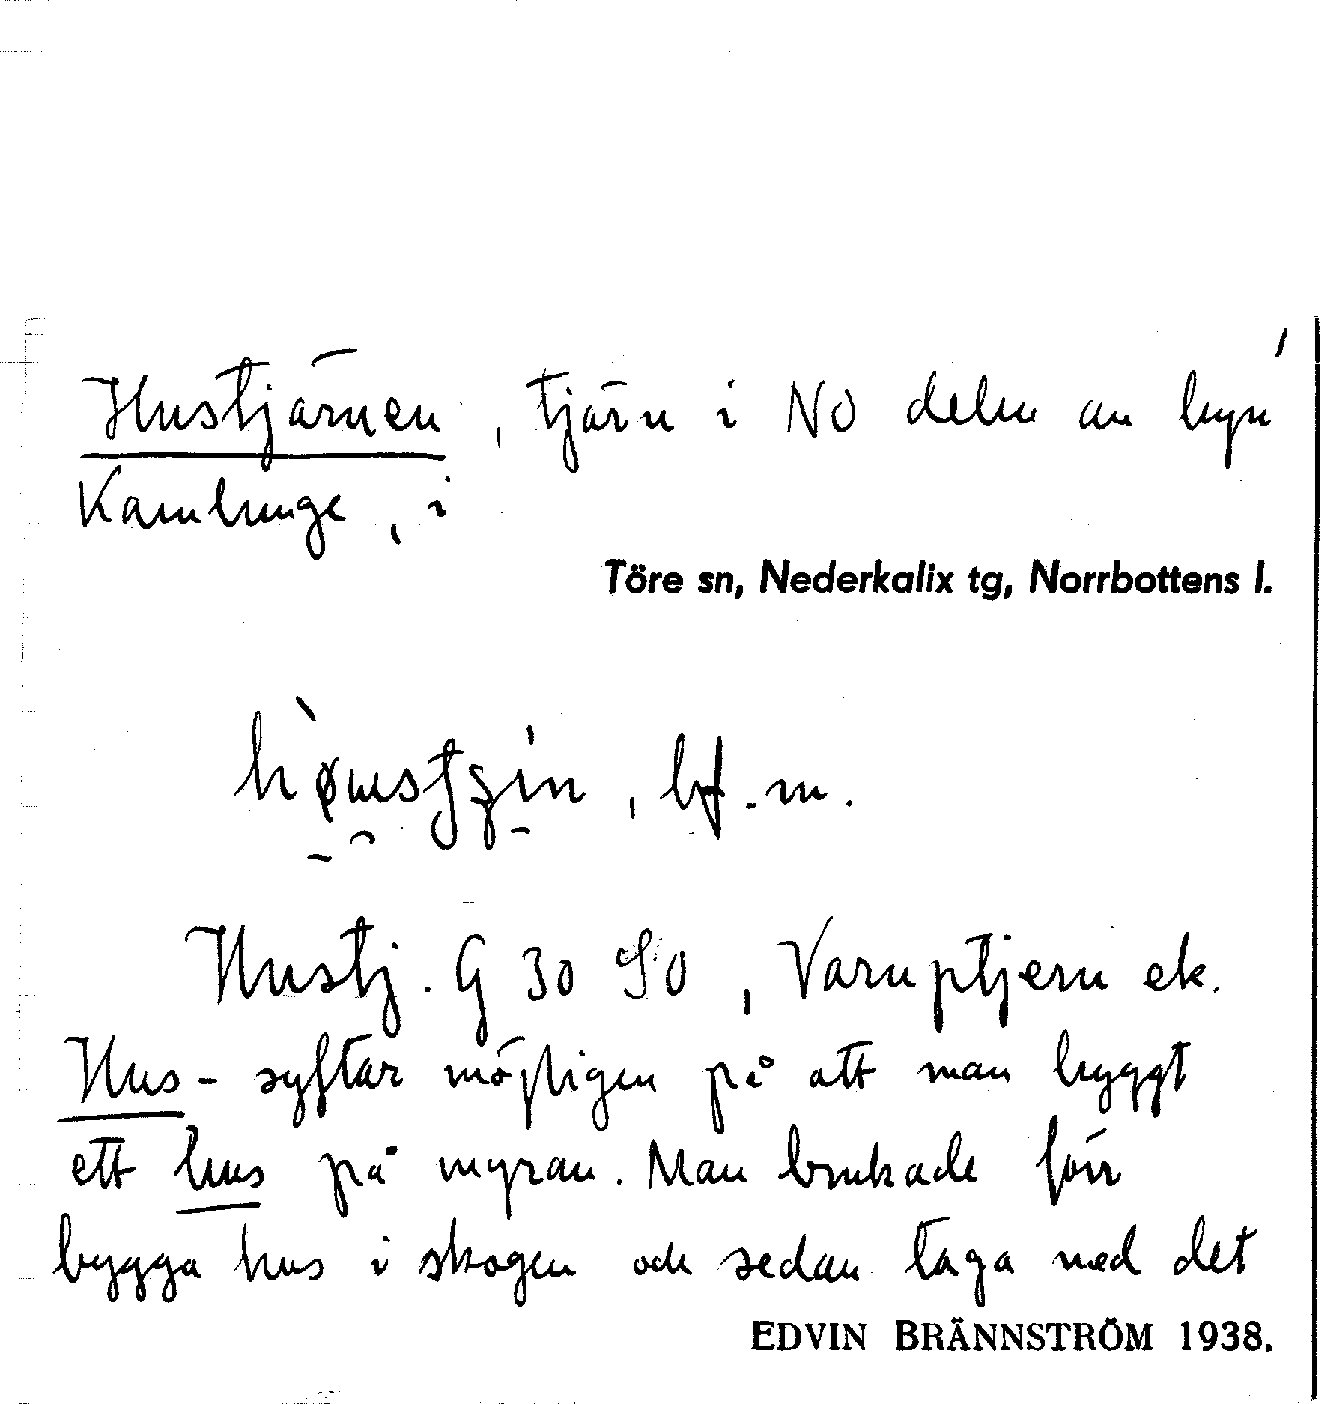 Hustjärnen, tjärn i NO delen av byn
Kamlunge, i
Töre sn, Nederkalix tg, Norrbottens l.
bf. m.
Hustj. G 30 SO, Varuptjern ek.
Hus- syftar möjligen på att man byggt
ett hus på myran. Man brukade förr
bygga hus i skogen och sedan taga ned det
EDVIN BRÄNNSTRÖM 1938.